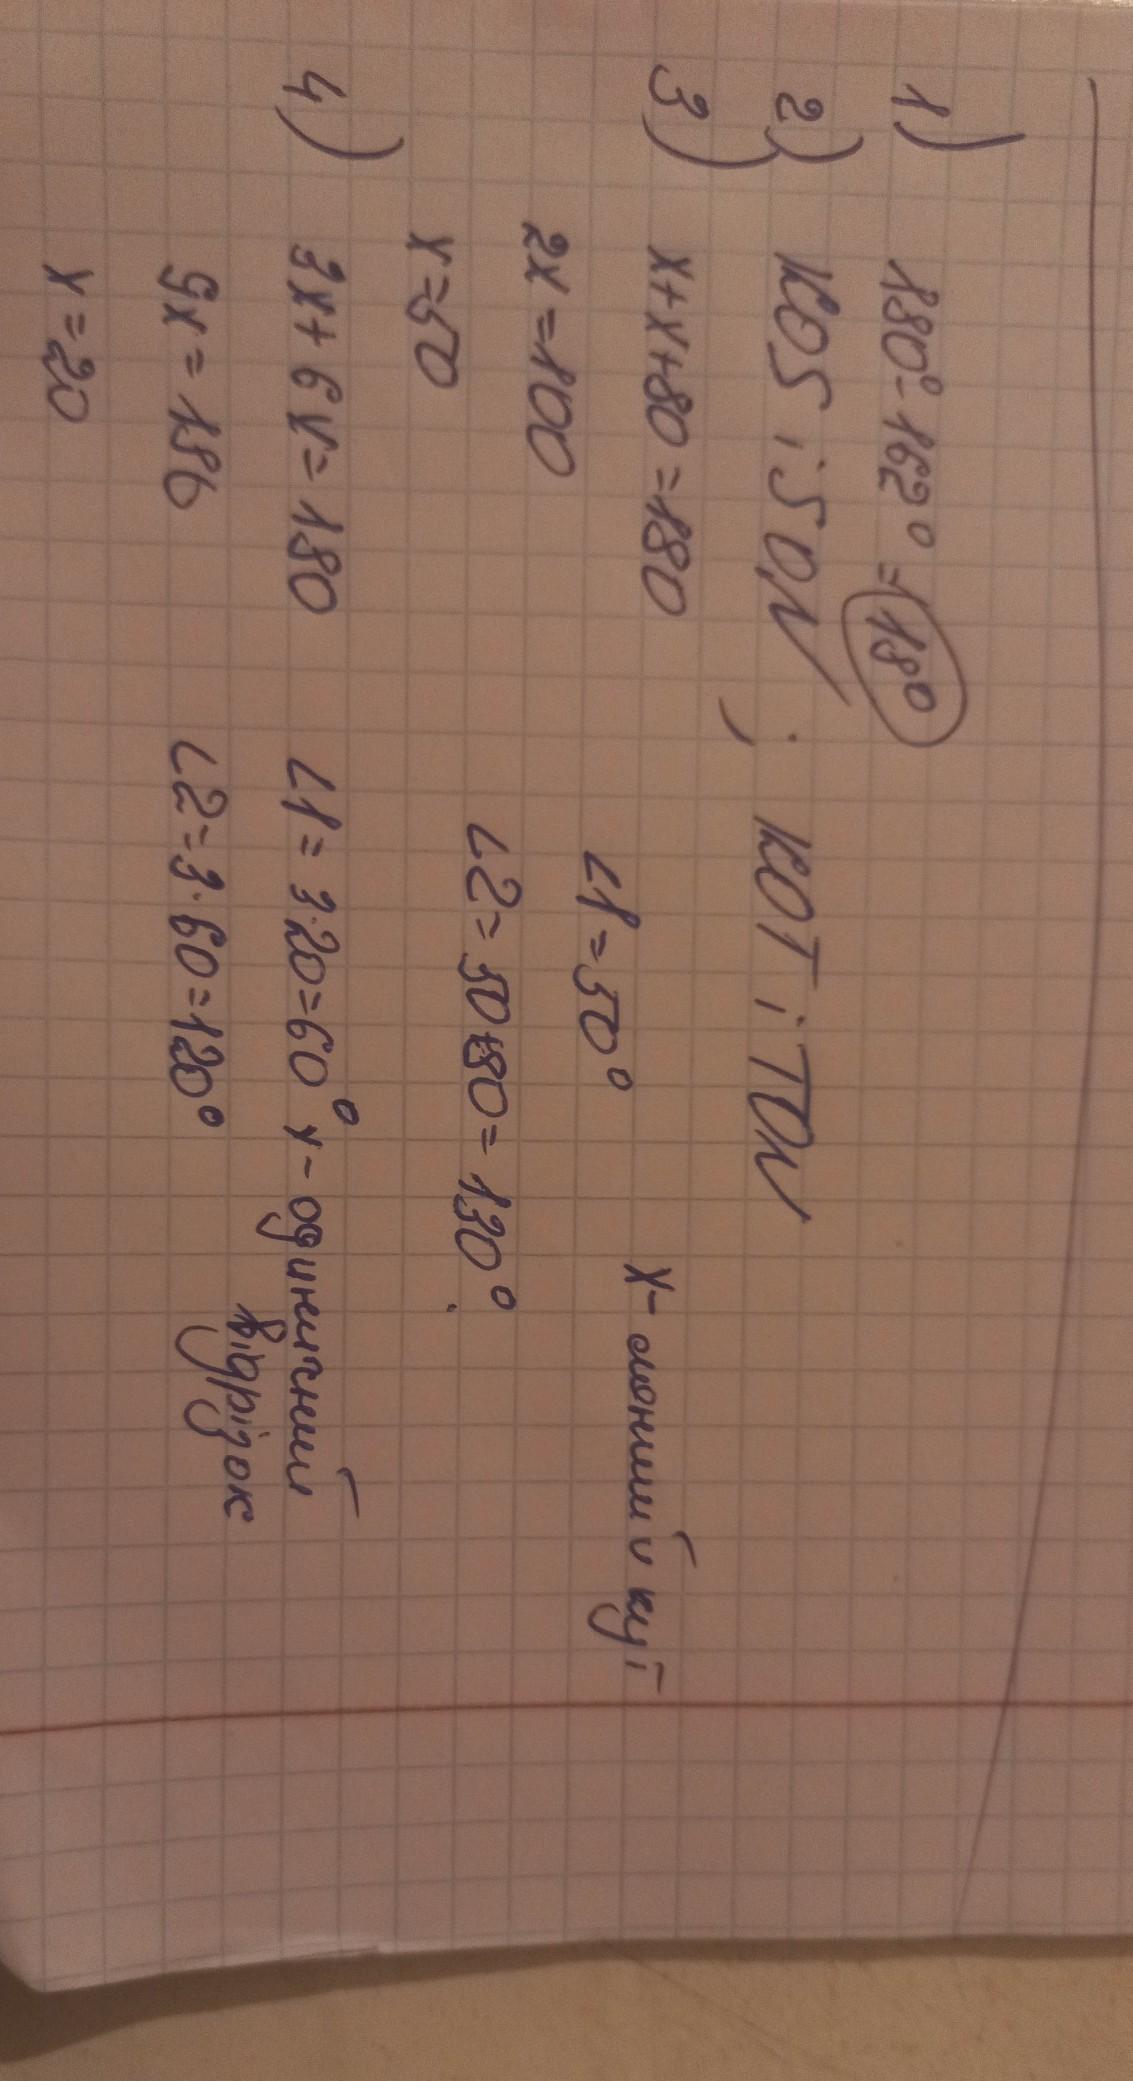 1) 180°-162°=18°
2) KOS i SON ; KOT i TON
3) x+x+80=180 x-
2x=100 ∠1=50°
x=50 ∠2=50+80=130°
4) 3x+6x=180 ∠1=3·20=60° x-одиничний
9x=180 ∠2=3·60=120° відрізок
x=20